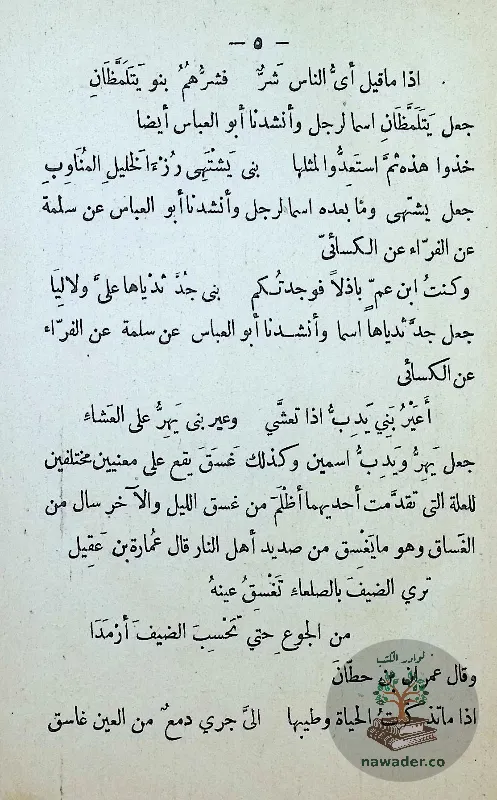 — ٥ —
اذا ماقيل أىُّ الناس شرٌّ فشرُّهمُ بنو يتَلَمَّظَانِ
جعل يَتَلَمَّظَانِ اسما لرجل وأنشدنا أبو العباس أيضا
خذوا هذه ثمَّ استَعِدُّوا لمثلها بنى يَشْتَهِى رُزْءَ الخليلِ المُنَاوِبِ
جعل يشتهى وما بعده اسما لرجل وأنشدنا أبو العباس عن سلمة
عن الفرّاء عن الكسائىّ
وكنتُ ابن عمّ باذلاً فوجدتُكم بنى جُدَّ ثدْياها علىَّ ولاليَا
جعل جدَّ ثدياها اسما وأنشدنا أبو العباس عن سلمة عن الفرّاء
عن الكسائى
أَعَيْرُ بَنِي يَدِبُّ اذا تعشَّي وعير بنى يَهِرُّ على العَشاء
جعل يَهِرُّ ويَدِبُّ اسمين وكذلك غَسق يقع على معنيين مختلفين
للعلة التى تقدَّمت أحديهما أظْلَمَ من غسق الليل والآخر سال من
الغَساق وهو مايَغْسِق من صديد أهل النار قال عُمارة بن عَقِيل
تري الضيفَ بالصلعاءِ تَغْسِقُ عينهُ
من الجوع حتي تَحْسِبَ الضيفَ أرْمَدَا
وقال عمران بن حطَّانَ
اذا ماتذكرتُ الحياة وطيبها الىَّ جري دمعٌ من العين غاسق
نوادر الكتب
nawader.co